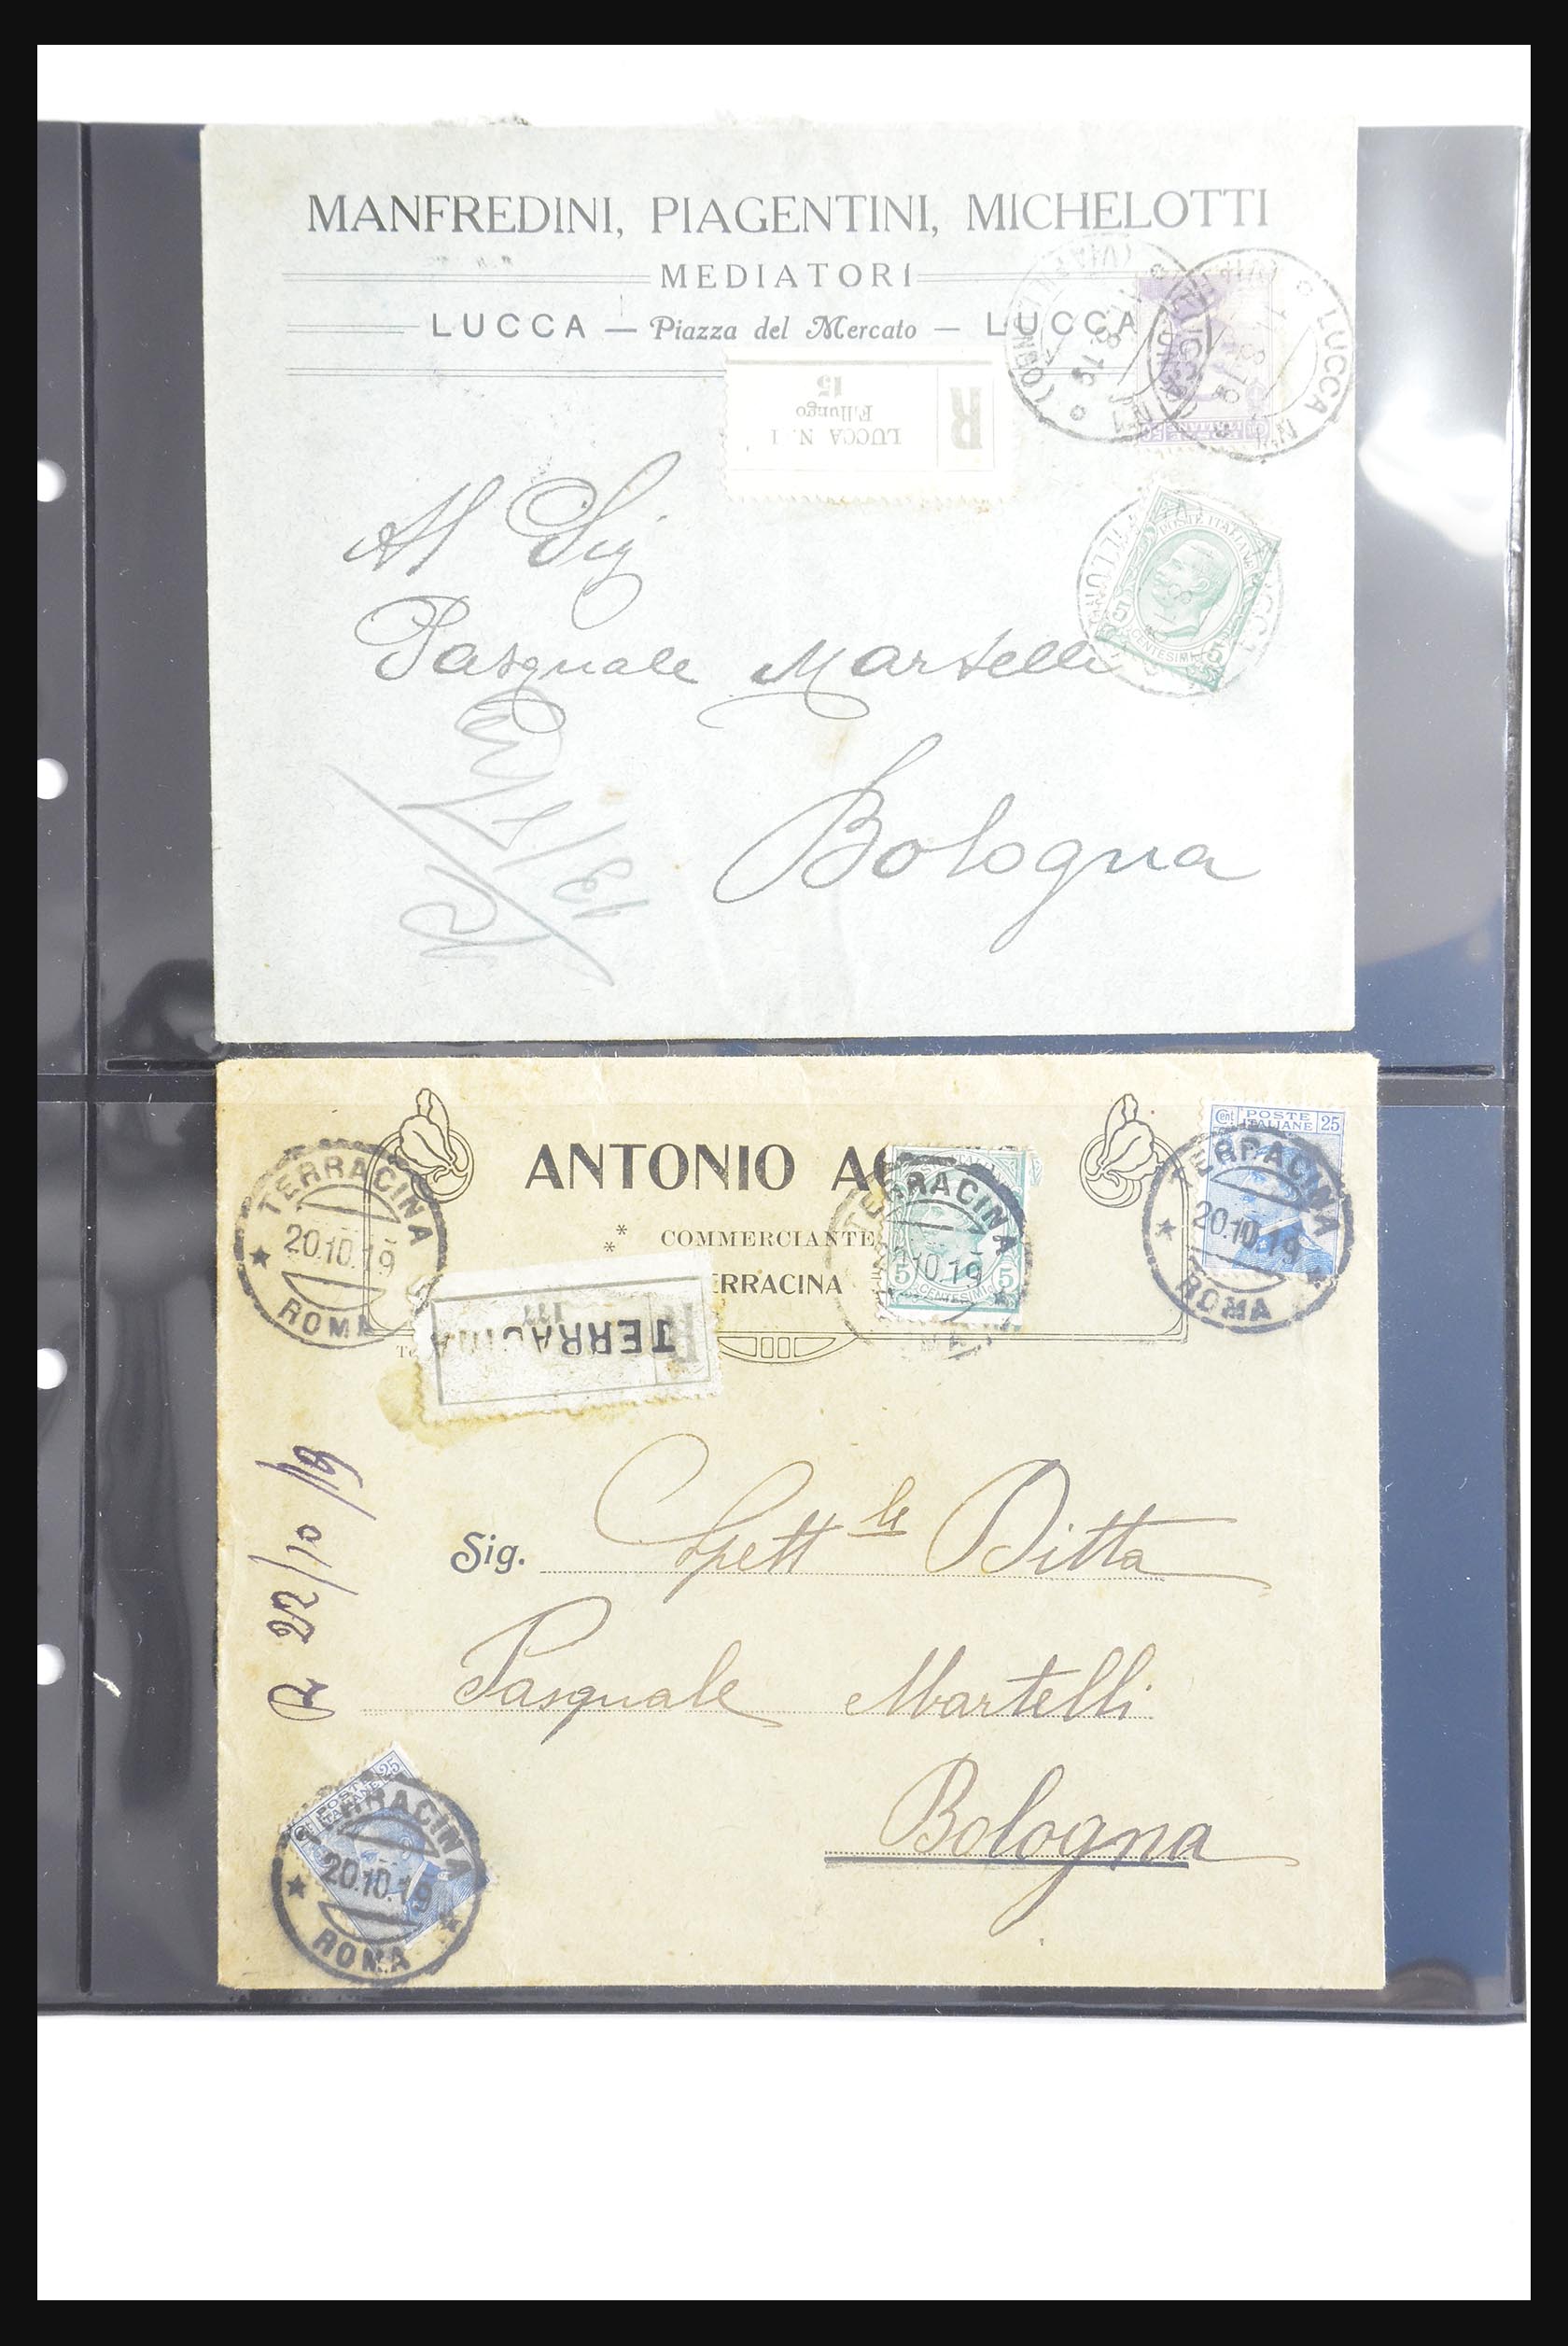 MANFREDINI, PIAGENTINI, MICHELOTTI
MEDIATORI
LUCCA — Piazza del Mercato — LUCCA
R LUCCA N. 1
Fillungo
15
LUCCA N.1
8.19
LUCCA N.1
8.19
POSTE ITALIANE
5 CENTESIMI 5
Al Sig
Pasquale Martelli
Bologna
ANTONIO
COMMERCIANTE
TERRACINA
TERRACINA
20.10.19
ROMA
TERRACINA
10.19
5 CENTESIMI 5
Cent POSTE ITALIANE 25
TERRACINA
20.10.19
ROMA
TERRACINA
R 22/10/19
Sig. Spett le Ditta
Pasquale Martelli
Bologna
POSTE ITALIANE 25
TERRACINA
20.10.19
ROMA